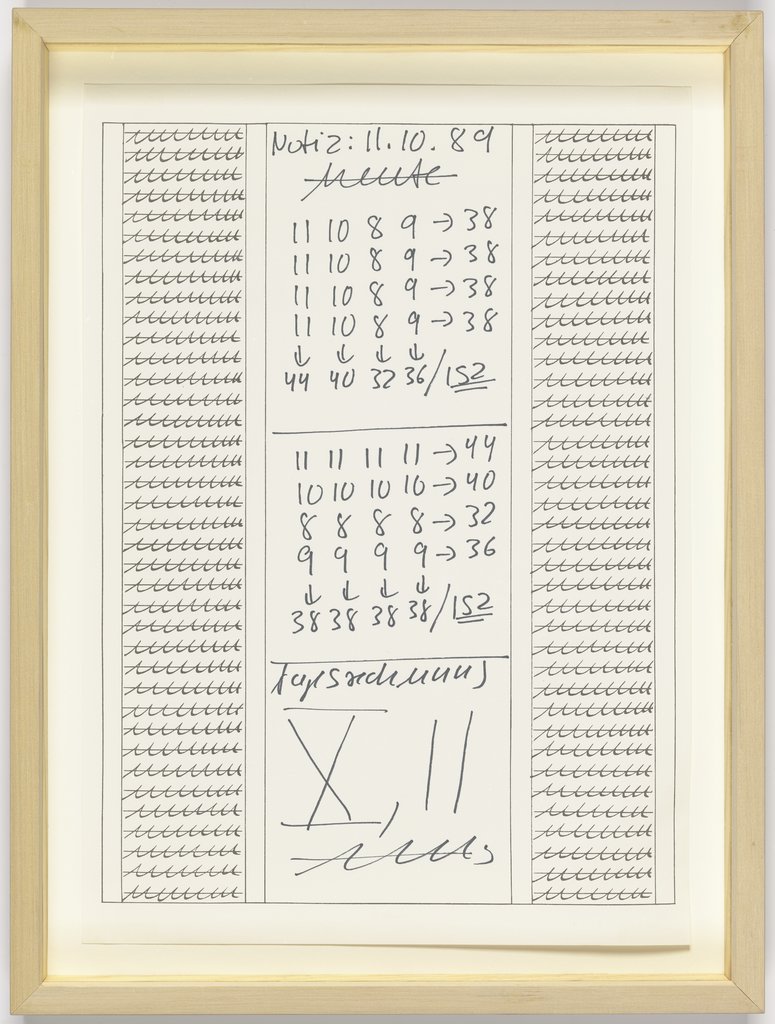 Notiz: 11.10.89
heute
11 10 8 9 → 38
11 10 8 9 → 38
11 10 8 9 → 38
11 10 8 9 → 38
↓ ↓ ↓ ↓
44 40 32 36/152
11 11 11 11 → 44
10 10 10 10 → 40
8 8 8 8 → 32
9 9 9 9 → 36
↓ ↓ ↓ ↓
38 38 38 38/152
Tagesrechnung
X, II